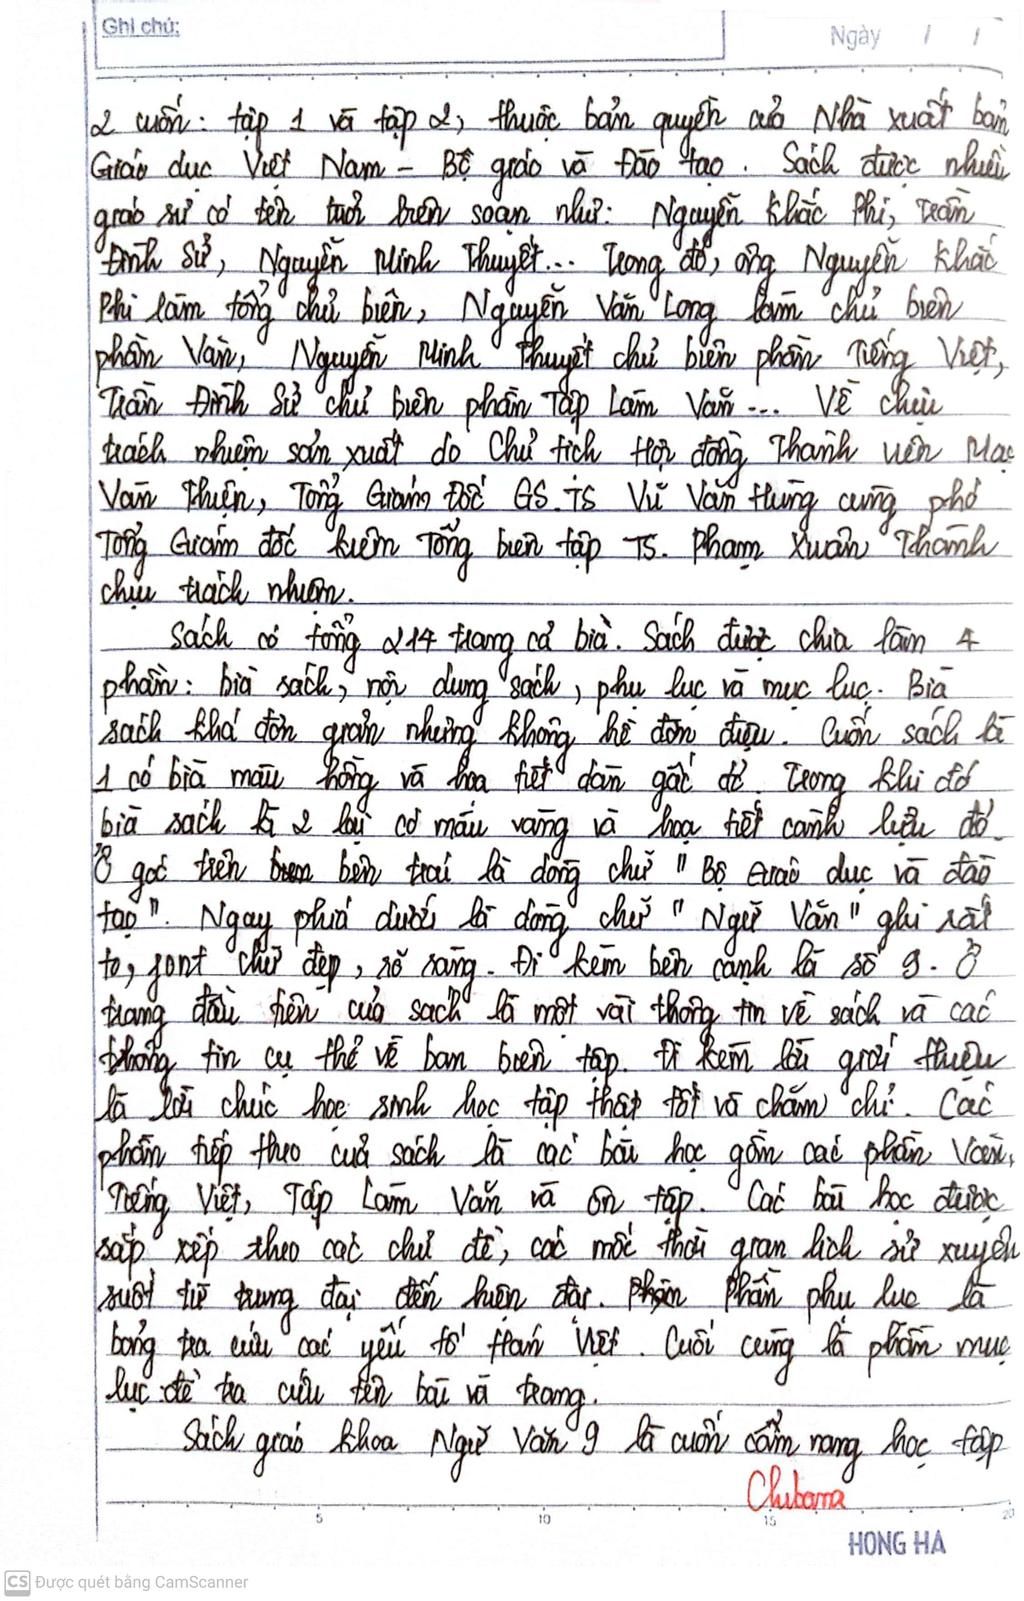 Ghi chú:
Ngày / /
2 cuốn: tập 1 và tập 2, thuộc bản quyền của Nhà xuất bản
Giáo dục Việt Nam - Bộ giáo và Đào tạo. Sách được nhiều
giáo sư có tên tuổi biên soạn như: Nguyễn Khắc Phi, Trần
Đình Sử, Nguyễn Minh Thuyết... Trong đó, ông Nguyễn Khắc
Phi làm tổng chủ biên, Nguyễn Văn Long làm chủ biên
phần Văn, Nguyễn Minh Thuyết chủ biên phần Tiếng Việt,
Trần Đình Sử chủ biên phần Tập Làm Văn... Về chịu
trách nhiệm sản xuất do Chủ tịch Hội đồng Thành viên Mạc
Văn Thiện, Tổng Giám Đốc GS.TS Vũ Văn Hùng cùng phó
Tổng Giám đốc kiêm Tổng biên tập TS. Phạm Xuân Thành
chịu trách nhiệm.
Sách có tổng 214 trang cả bìa. Sách được chia làm 4
phần: bìa sách, nội dung sách, phụ lục và mục lục. Bìa
sách khá đơn giản nhưng không hề đơn điệu. Cuốn sách là
1 có bìa màu hồng và hoa tiết dàn gấc đỏ. Trong khi đó
bìa sách là 2 lại có màu vàng và họa tiết cành lựu đỏ.
Ở góc trên bên trái là dòng chữ "Bộ Giáo dục và đào
tạo". Ngay phía dưới là dòng chữ "Ngữ Văn" ghi rất
to, font chữ đẹp, rõ ràng. Đi kèm bên cạnh là số 9. Ở
trang đầu tiên của sách là một vài thông tin về sách và các
thông tin cụ thể về ban biên tập. Đi kèm lời giới thiệu
là lời chúc học sinh học tập thật tốt và chăm chỉ. Các
phần tiếp theo của sách là các bài học gồm các phần Văn,
Tiếng Việt, Tập Làm Văn và ôn tập. Các bài học được
sắp xếp theo các chủ đề, các mốc thời gian lịch sử xuyên
suốt từ trung đại đến hiện đại. Phần phụ lục là
bảng tra cứu các yếu tố Hán Việt. Cuối cùng là phần mục
lục để tra cứu tên bài và trang.
Sách giáo khoa Ngữ Văn 9 là cuốn cẩm nang học tập
Chibana
5 10 15 20
HONG HA
CS Được quét bằng CamScanner